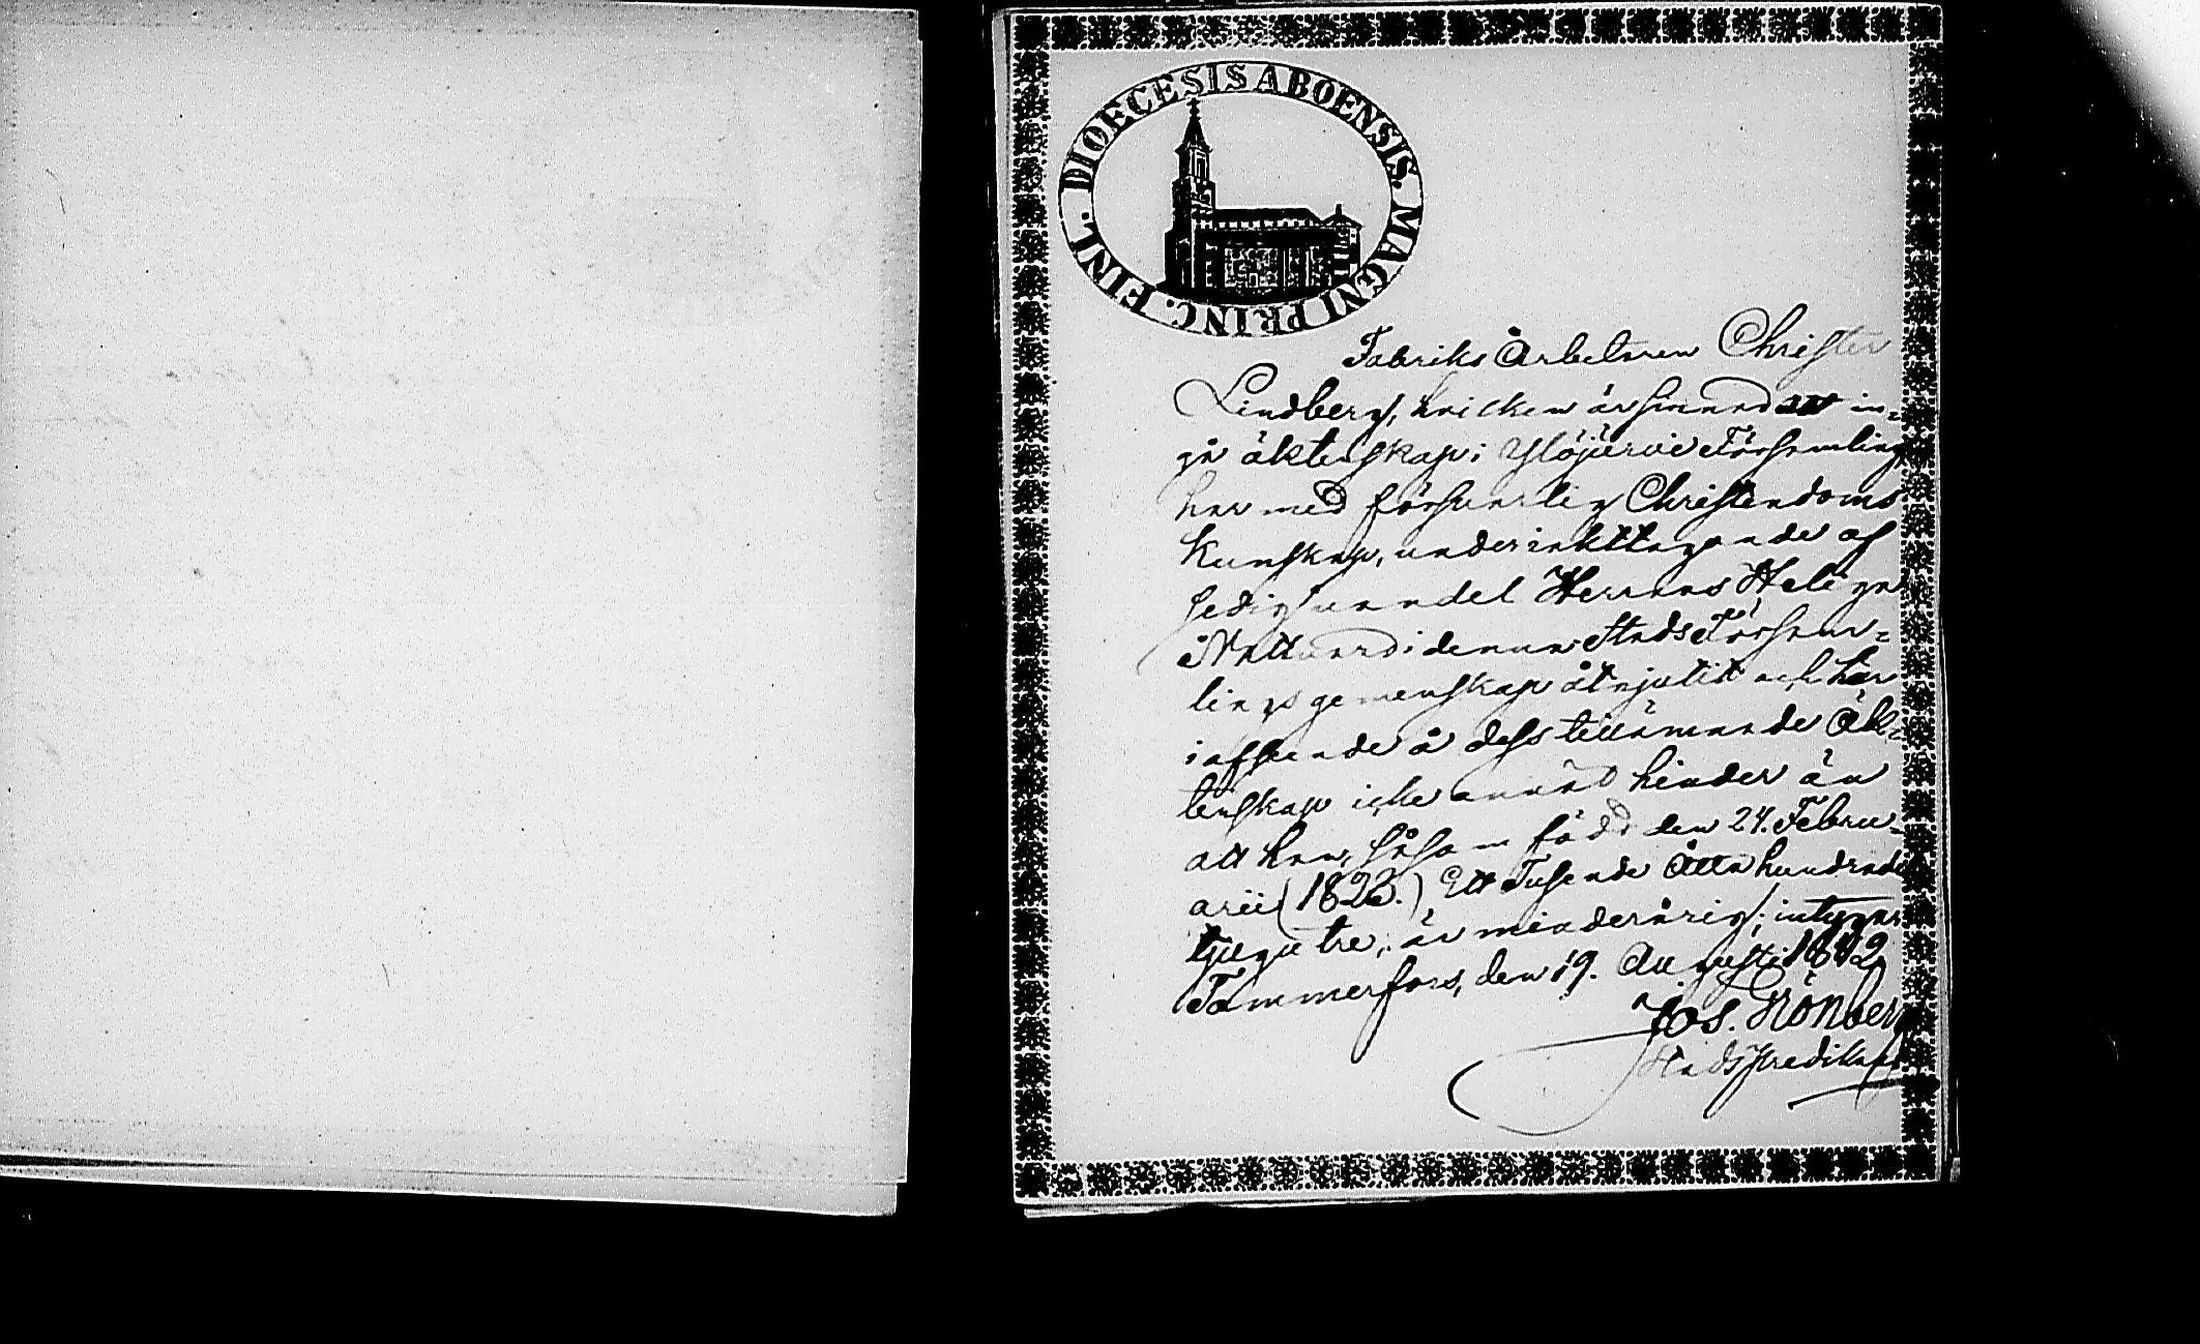 DIOECESIS ABOENSIS. MAGNI PRINC. FINL.
Fabriks Arbetaren Christer
Lindberg, hvilken är sinnad att in-
gå äktenskap i Ylöjärvi Församling
har med försvarlig Christendoms
kunskap, under iakttagande af
sedig vandel Herrans Heliga
Nattvard i denna Stads Försam-
lings gemenskap åtnjutit och har
i afseende å dess tillämnande Äk-
tenskap icke annat hinder än
att han, såsom född den 24. Febru-
arii (1823.) Ett Tusende Åtta hundrade
tjugu tre, är minderårig; intygar
Tammerfors, den 19. Augusti 1842
Jos. Grönberg
Stadspredikant